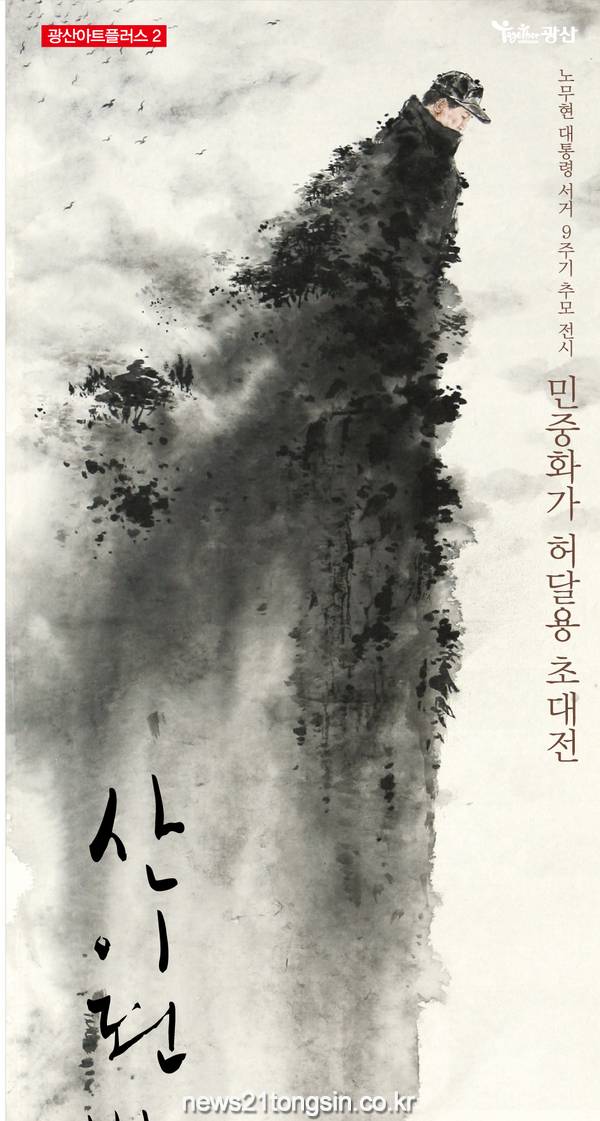 광산아트플러스 2
Together 광산
노무현 대통령 서거 9주기 추모 전시
민중화가 허달용 초대전
산이
된
news21tongsin.co.kr